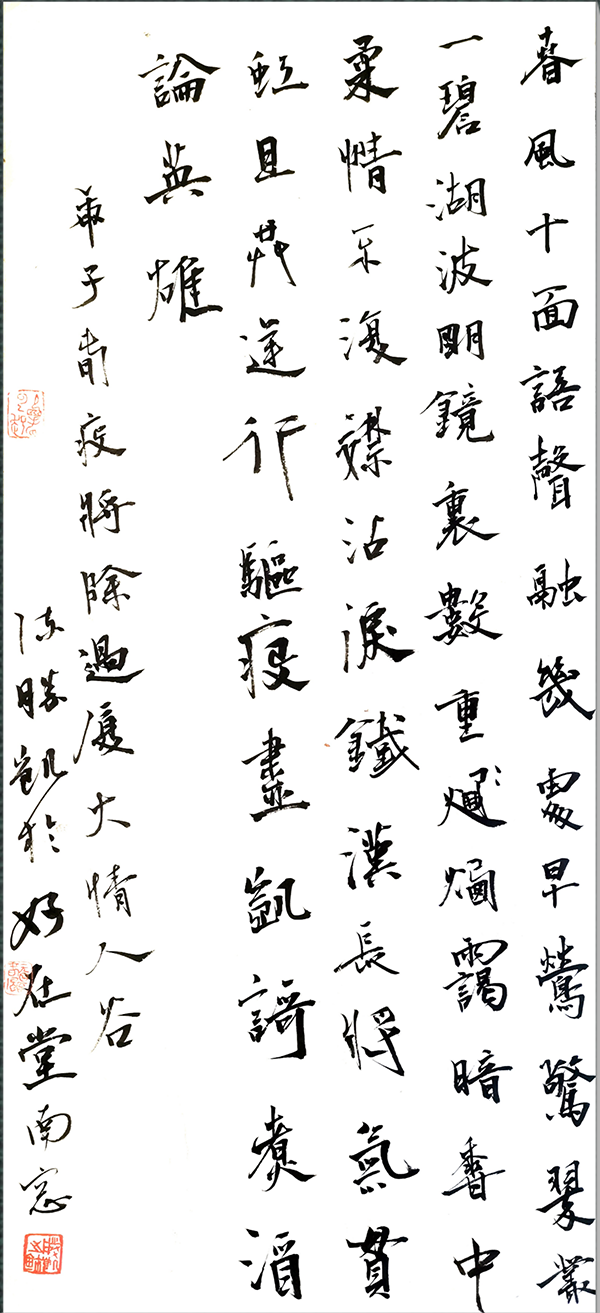 春風十面語聲融幾處早鶯驚翠叢
一碧湖波明鏡裏數重烟靄暗香中
柔情不復襟沾淚鐵漢長將氣貫
虹且共逆行驅疫盡凱謌煮酒
論英雄
庚子疫將除過廈大情人谷
陳勝凱於好在堂南窗